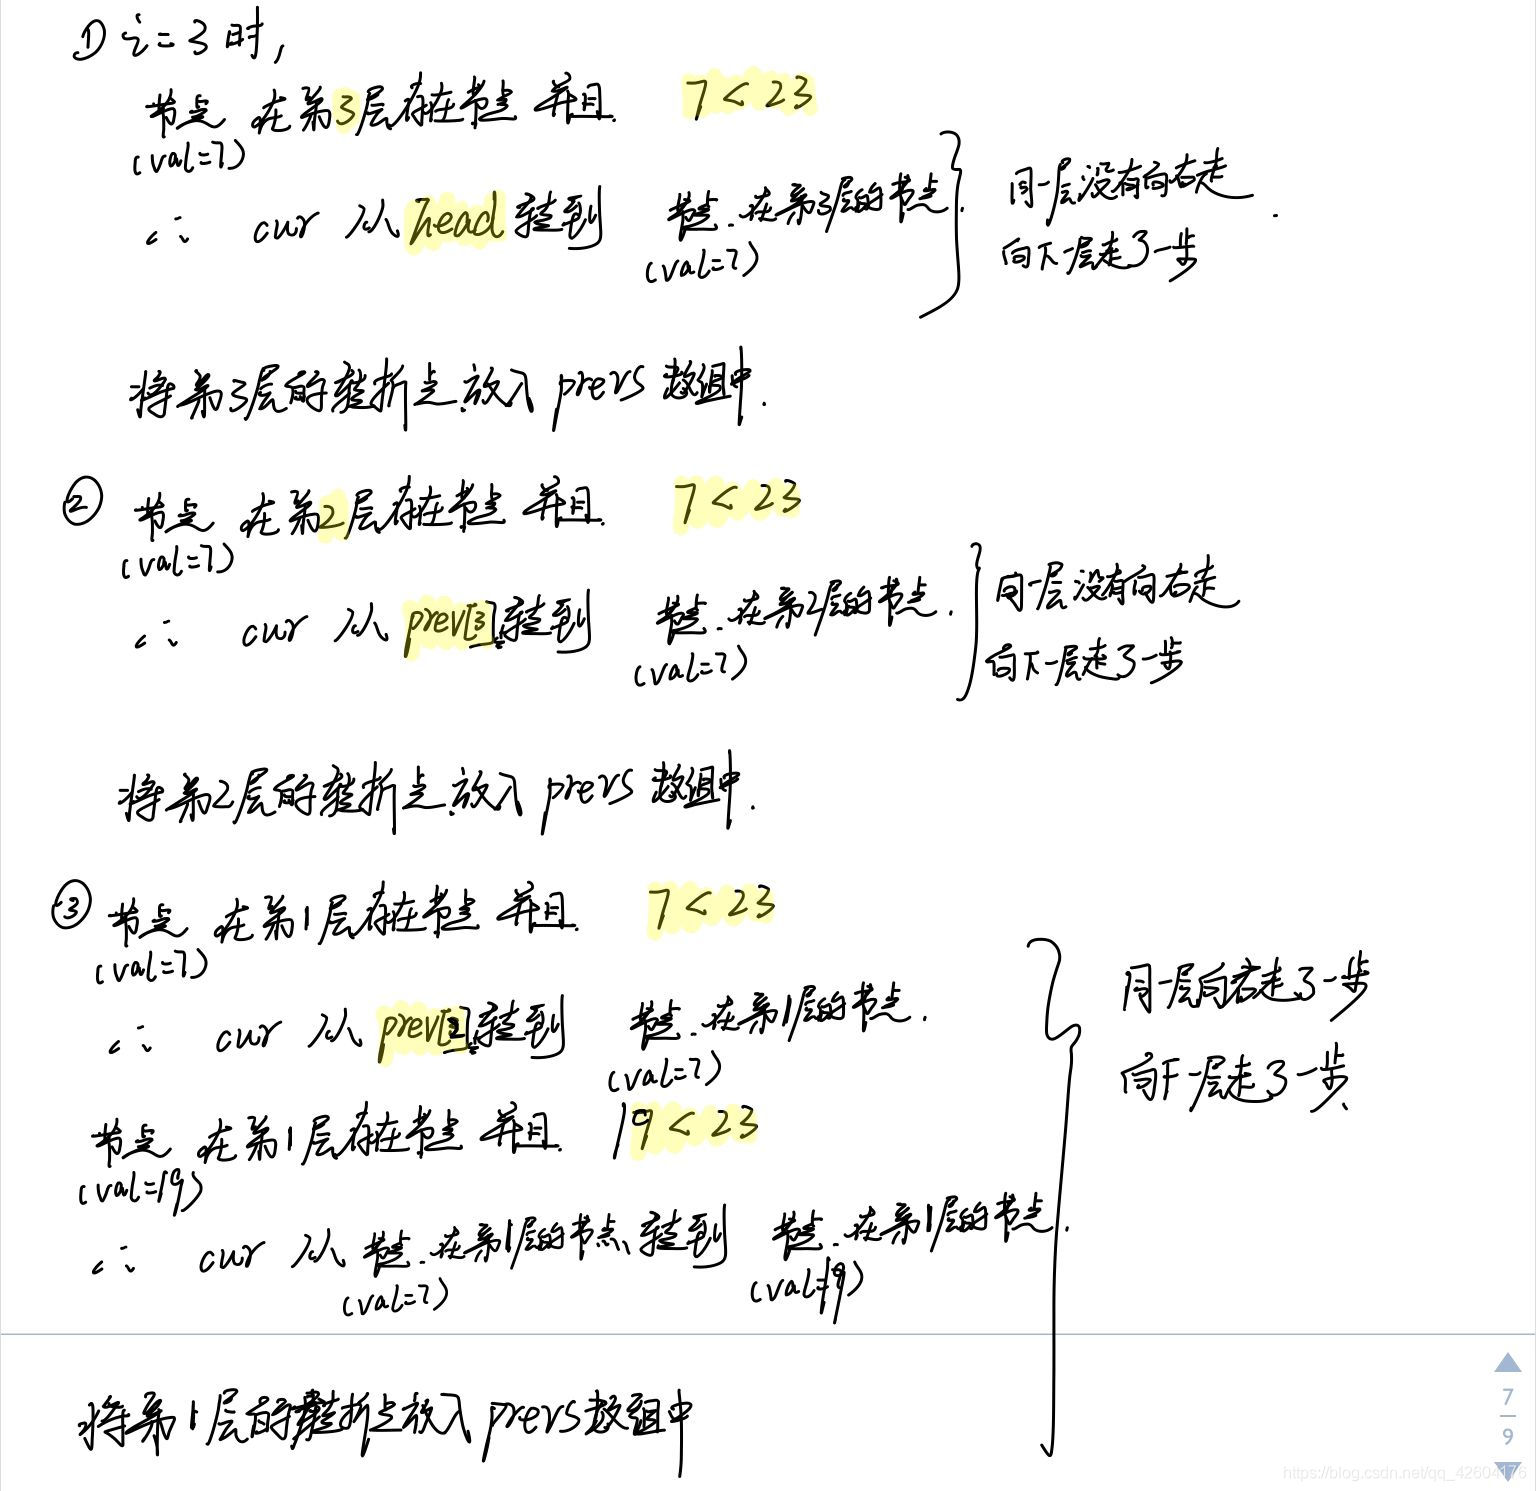 ① i=3 时,
节点 在第3层存在节点 并且 7<23
(val=7)
∴ cur 从 head 转到 节点 在第3层的节点.
(val=7)
同一层没有向右走
向下一层走了一步
将第3层的转折点放入 prevs 数组中.
② 节点 在第2层存在节点 并且 7<23
(val=7)
∴ cur 从 prev[3] 转到 节点 在第2层的节点.
(val=7)
同一层没有向右走
向下一层走了一步
将第2层的转折点放入 prevs 数组中.
③ 节点 在第1层存在节点 并且 7<23
(val=7)
∴ cur 从 prev[2] 转到 节点 在第1层的节点.
(val=7)
节点 在第1层存在节点 并且 19<23
(val=19)
∴ cur 从 节点 在第1层的节点、转到 节点 在第1层的节点.
(val=7) (val=19)
同一层向右走了一步
向下一层走了一步
将第1层的转折点放入 prevs 数组中
7
9
https://blog.csdn.net/qq_42604176